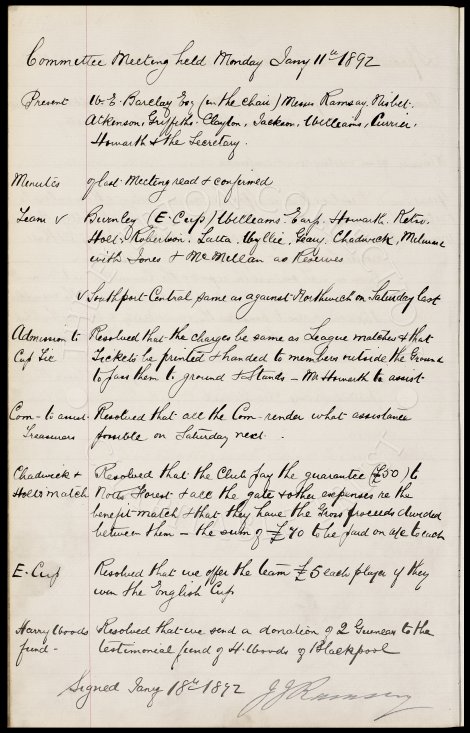 Committee Meeting held Monday Jany 11th 1892
Present W. E. Barclay Esq (in the chair) Messrs Ramsay, Nisbet.
Atkinson, Griffiths. Clayton, Jackson, Williams, Currier,
Howarth & the Secretary.
Minutes of last Meeting read & confirmed
Team v Burnley (E. Cup) Williams. Earp. Howarth. Kelso.
Holt. Robertson. Latta. Wyllie. Geary. Chadwick, Milward
with Jones & McMillan as Reserves
v Southport Central same as against Northwich on Saturday last
Admission to Resolved that the charges be same as League matches & that
Cup Tie Tickets be printed & handed to members outside the Ground
to pass them to ground & Stands – Mr Howarth to assist
Com– to assist Resolved that all the Com– render what assistance
Treasurers possible on Saturday next.
Chadwick & Resolved that the Club pay the guarantee (£50) to
Holts match Notts Forest & all the gate & other expenses re the
benefit match & that they have the Gross proceeds divided
between them – the sum of £70 to be paid on a/c to each
E. Cup Resolved that we offer the team £5 each player if they
win the English Cup
Harry Woods Resolved that we send a donation of 2 Guineas to the
fund– testimonial fund of H. Woods of Blackpool
Signed Jany 18th 1892 J J Ramsay